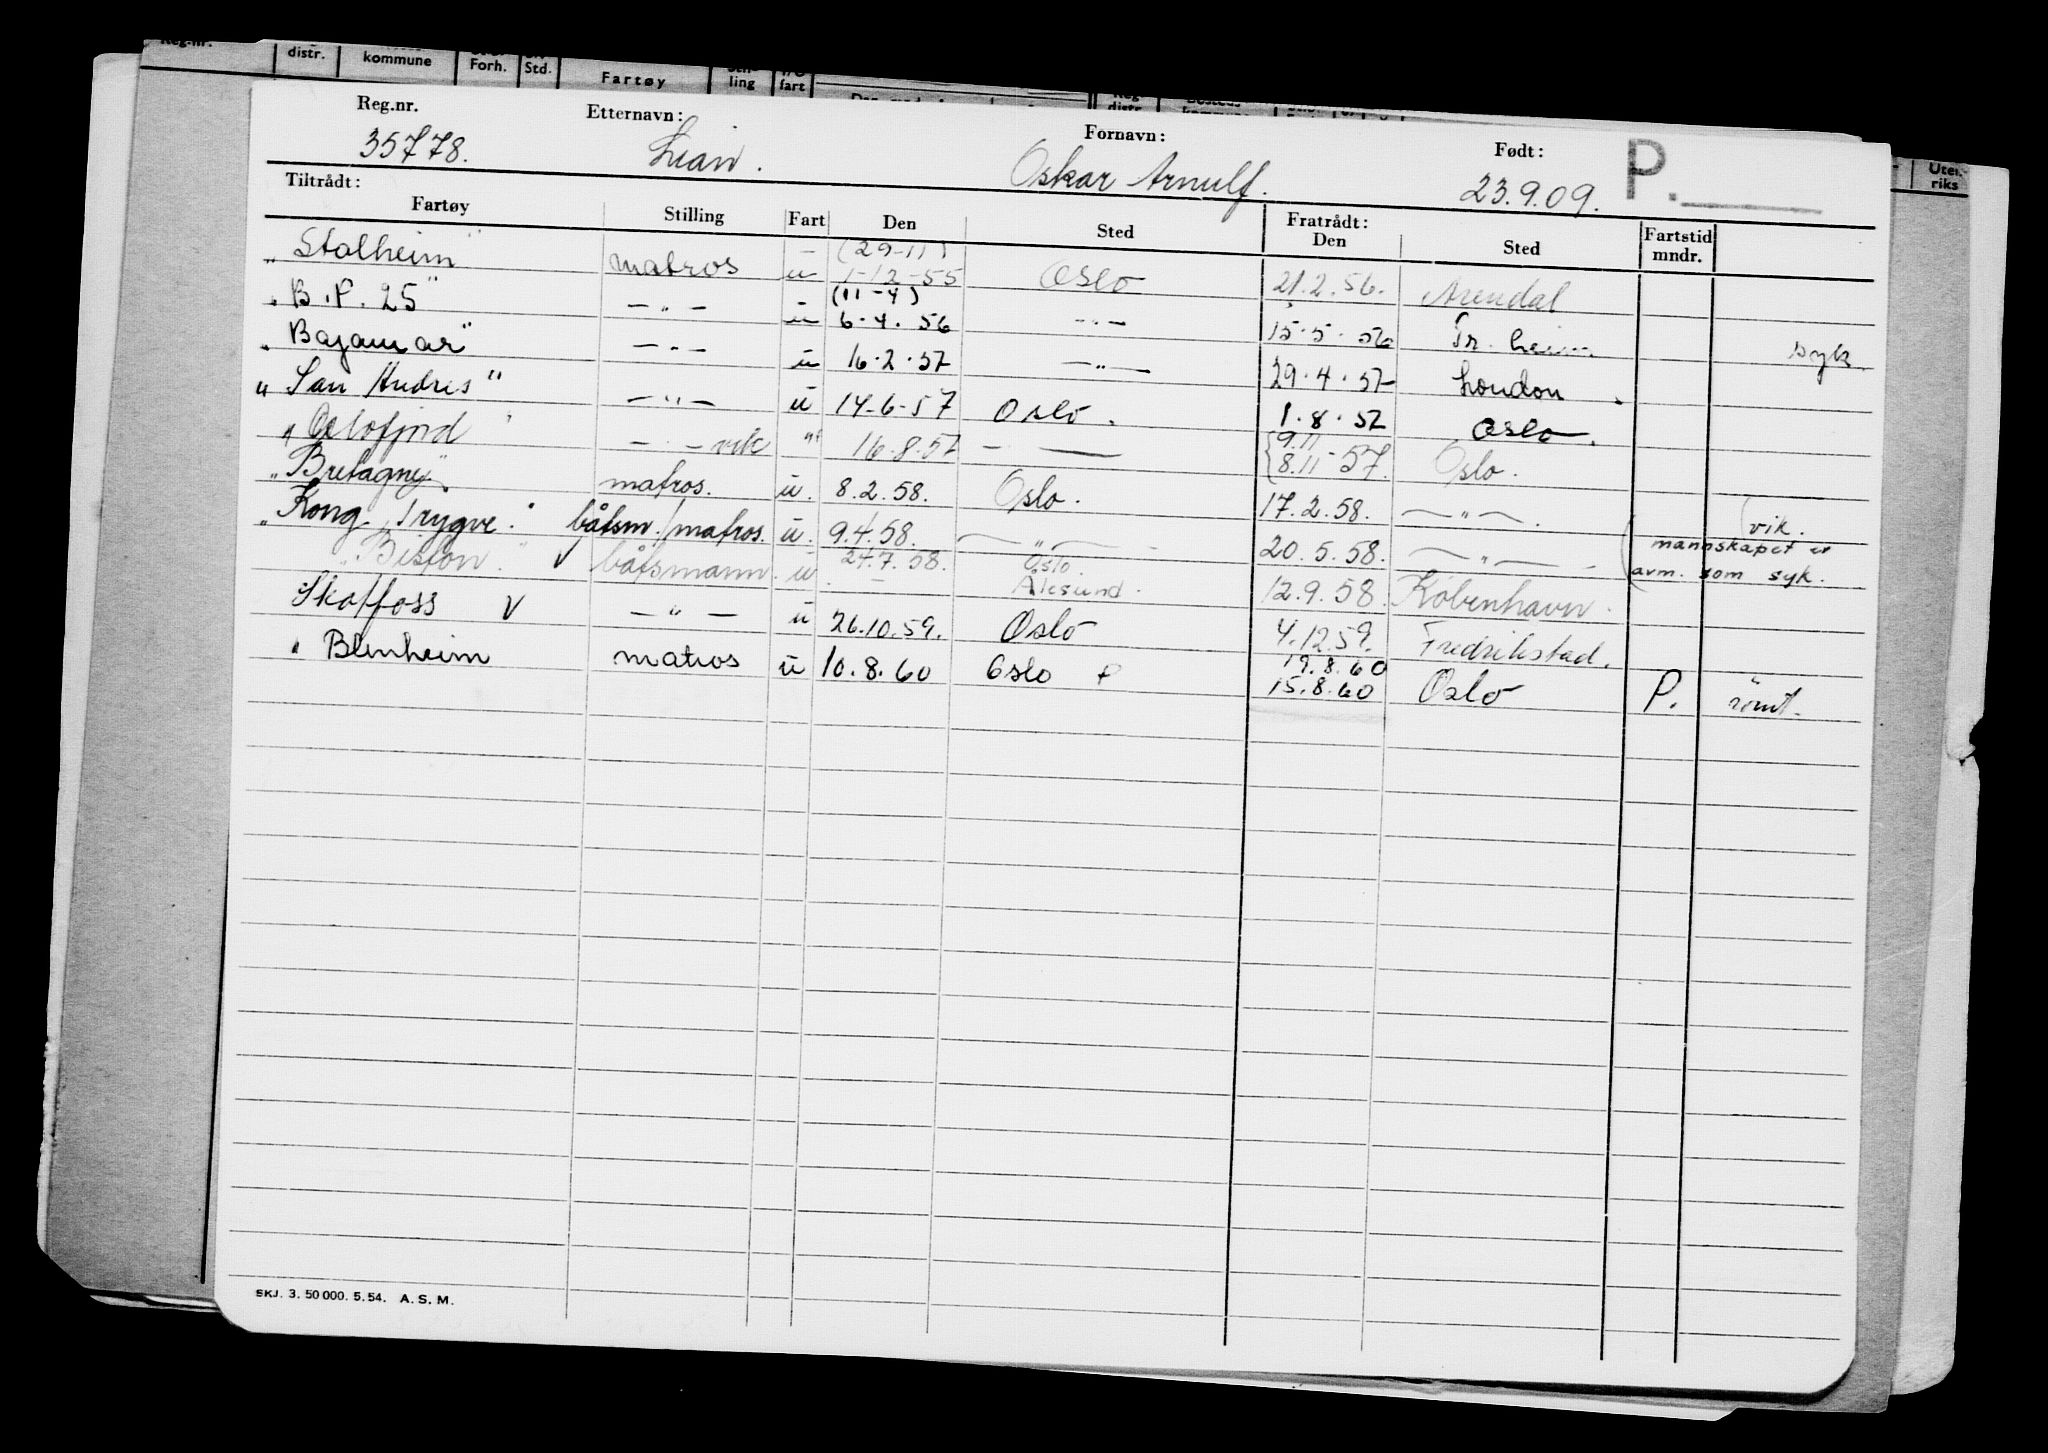 Reg.nr.
distr.
kommune
Forh.
Std.
Fartøy
ling
fart
Uten-
riks
Reg.nr. Etternavn: Fornavn: Født:
35778. Lian. Oskar Arnulf. 23.9.09. P.
Tiltrådt: Fratrådt:
Fartøy Stilling Fart Den Sted Den Sted Fartstid mndr.
(29-11)
"Stalheim" matros u 1-12-55 Oslo 21.2.56. Arendal
(11-4)
"B.P. 25" — " — u 6-4.56 — " — 15.5.56 Tr. heim. syk.
"Bajamar" — " — u 16.2.57 — " — 29.4.57 London.
"San Andres" — " — u 14-6-57 Oslo. 1.8.57 Oslo.
9.11
"Oslofjord" — " — vik 16.8.57 — — 8.11-57. Oslo.
"Bretagne" matros. u. 8.2.58. Oslo. 17.2.58. — " —. (vik.
"Kong Trygve." båtsm./matros. u. 9.4.58. — " — 20.5.58. — " — (mannskapet er
avm. som syk.
"Biston." V båtsmann. u. 24.7.58. Oslo.
— Ålesund. 12.9.58. København.
Skotfoss V — " — u 26.10.59. Oslo 4.12.59. Fredrikstad.
19.8.60
" Blenheim matros u 10.8.60 Oslo P 15.8.60 Oslo P. rømt.
SKJ. 3. 50 000. 5. 54. A. S. M.